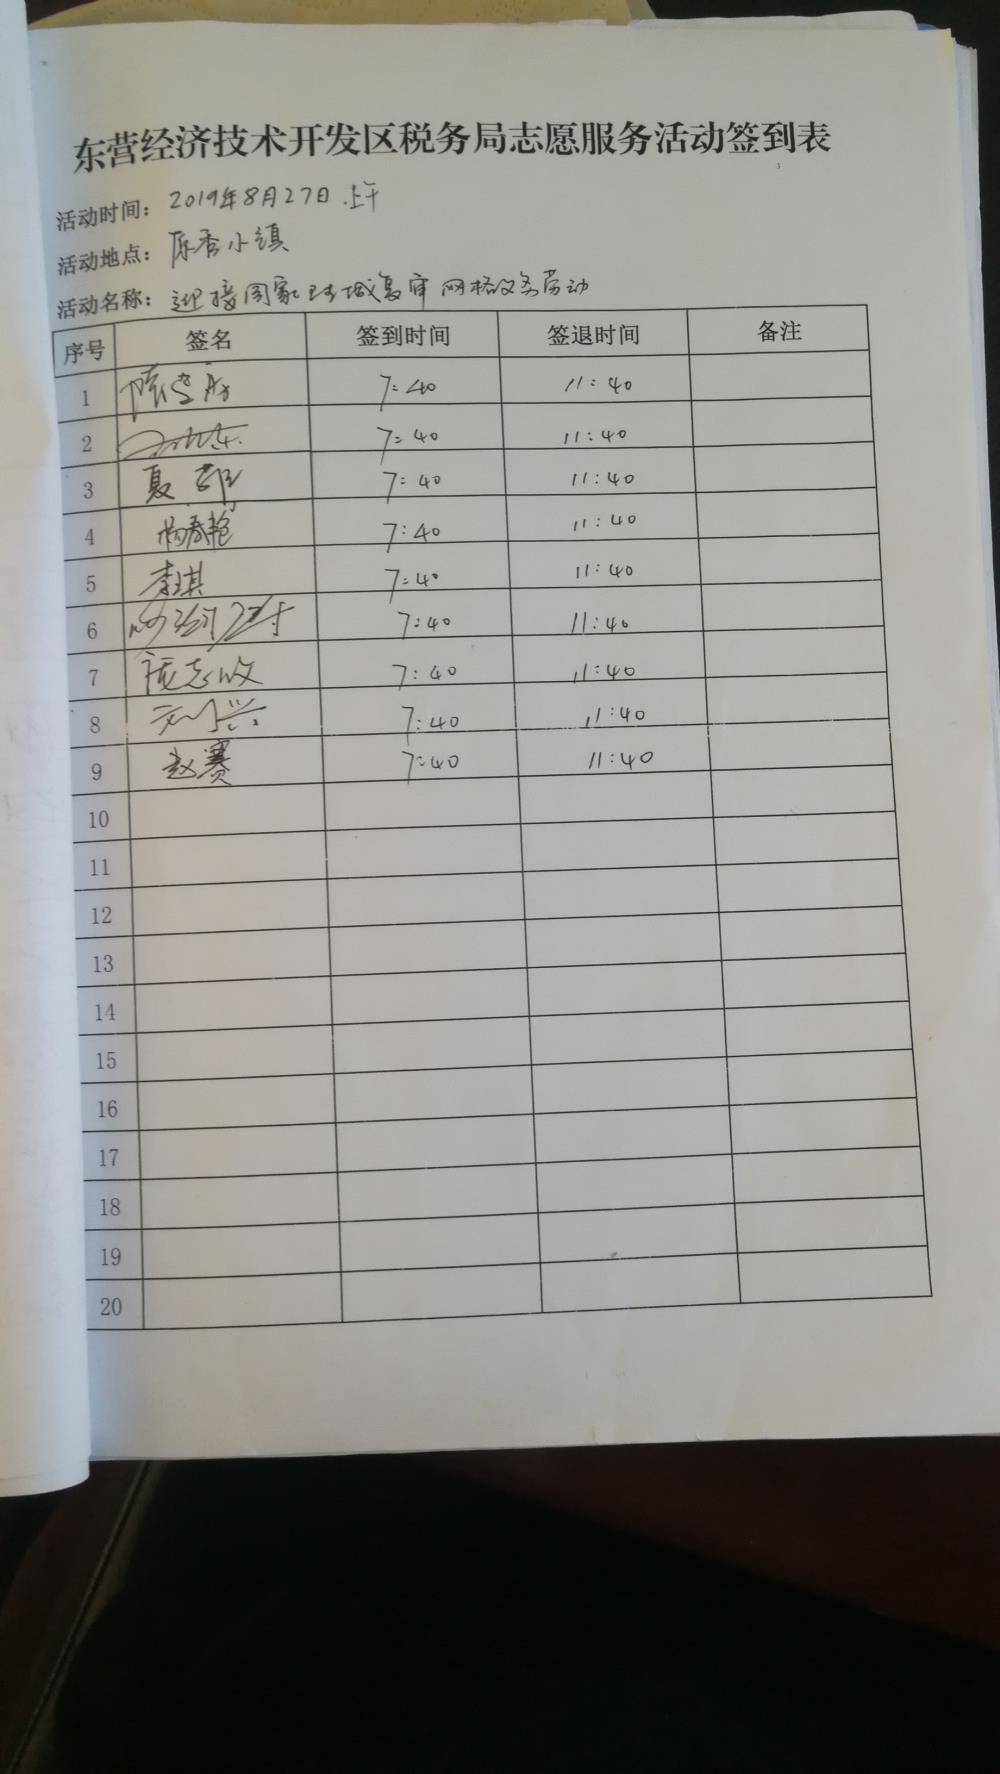 东营经济技术开发区税务局志愿服务活动签到表
活动时间: 2019年8月27日上午
活动地点: 原香小镇
活动名称: 迎接国家环城复审网格义务劳动
序号 签名 签到时间 签退时间 备注
1 7:40 11:40
2 7:40 11:40
3 夏 7:40 11:40
4 杨春艳 7:40 11:40
5 李琪 7:40 11:40
6 7:40 11:40
7 庞志 7:40 11:40
8 刘兴 7:40 11:40
9 赵赛 7:40 11:40
10
11
12
13
14
15
16
17
18
19
20